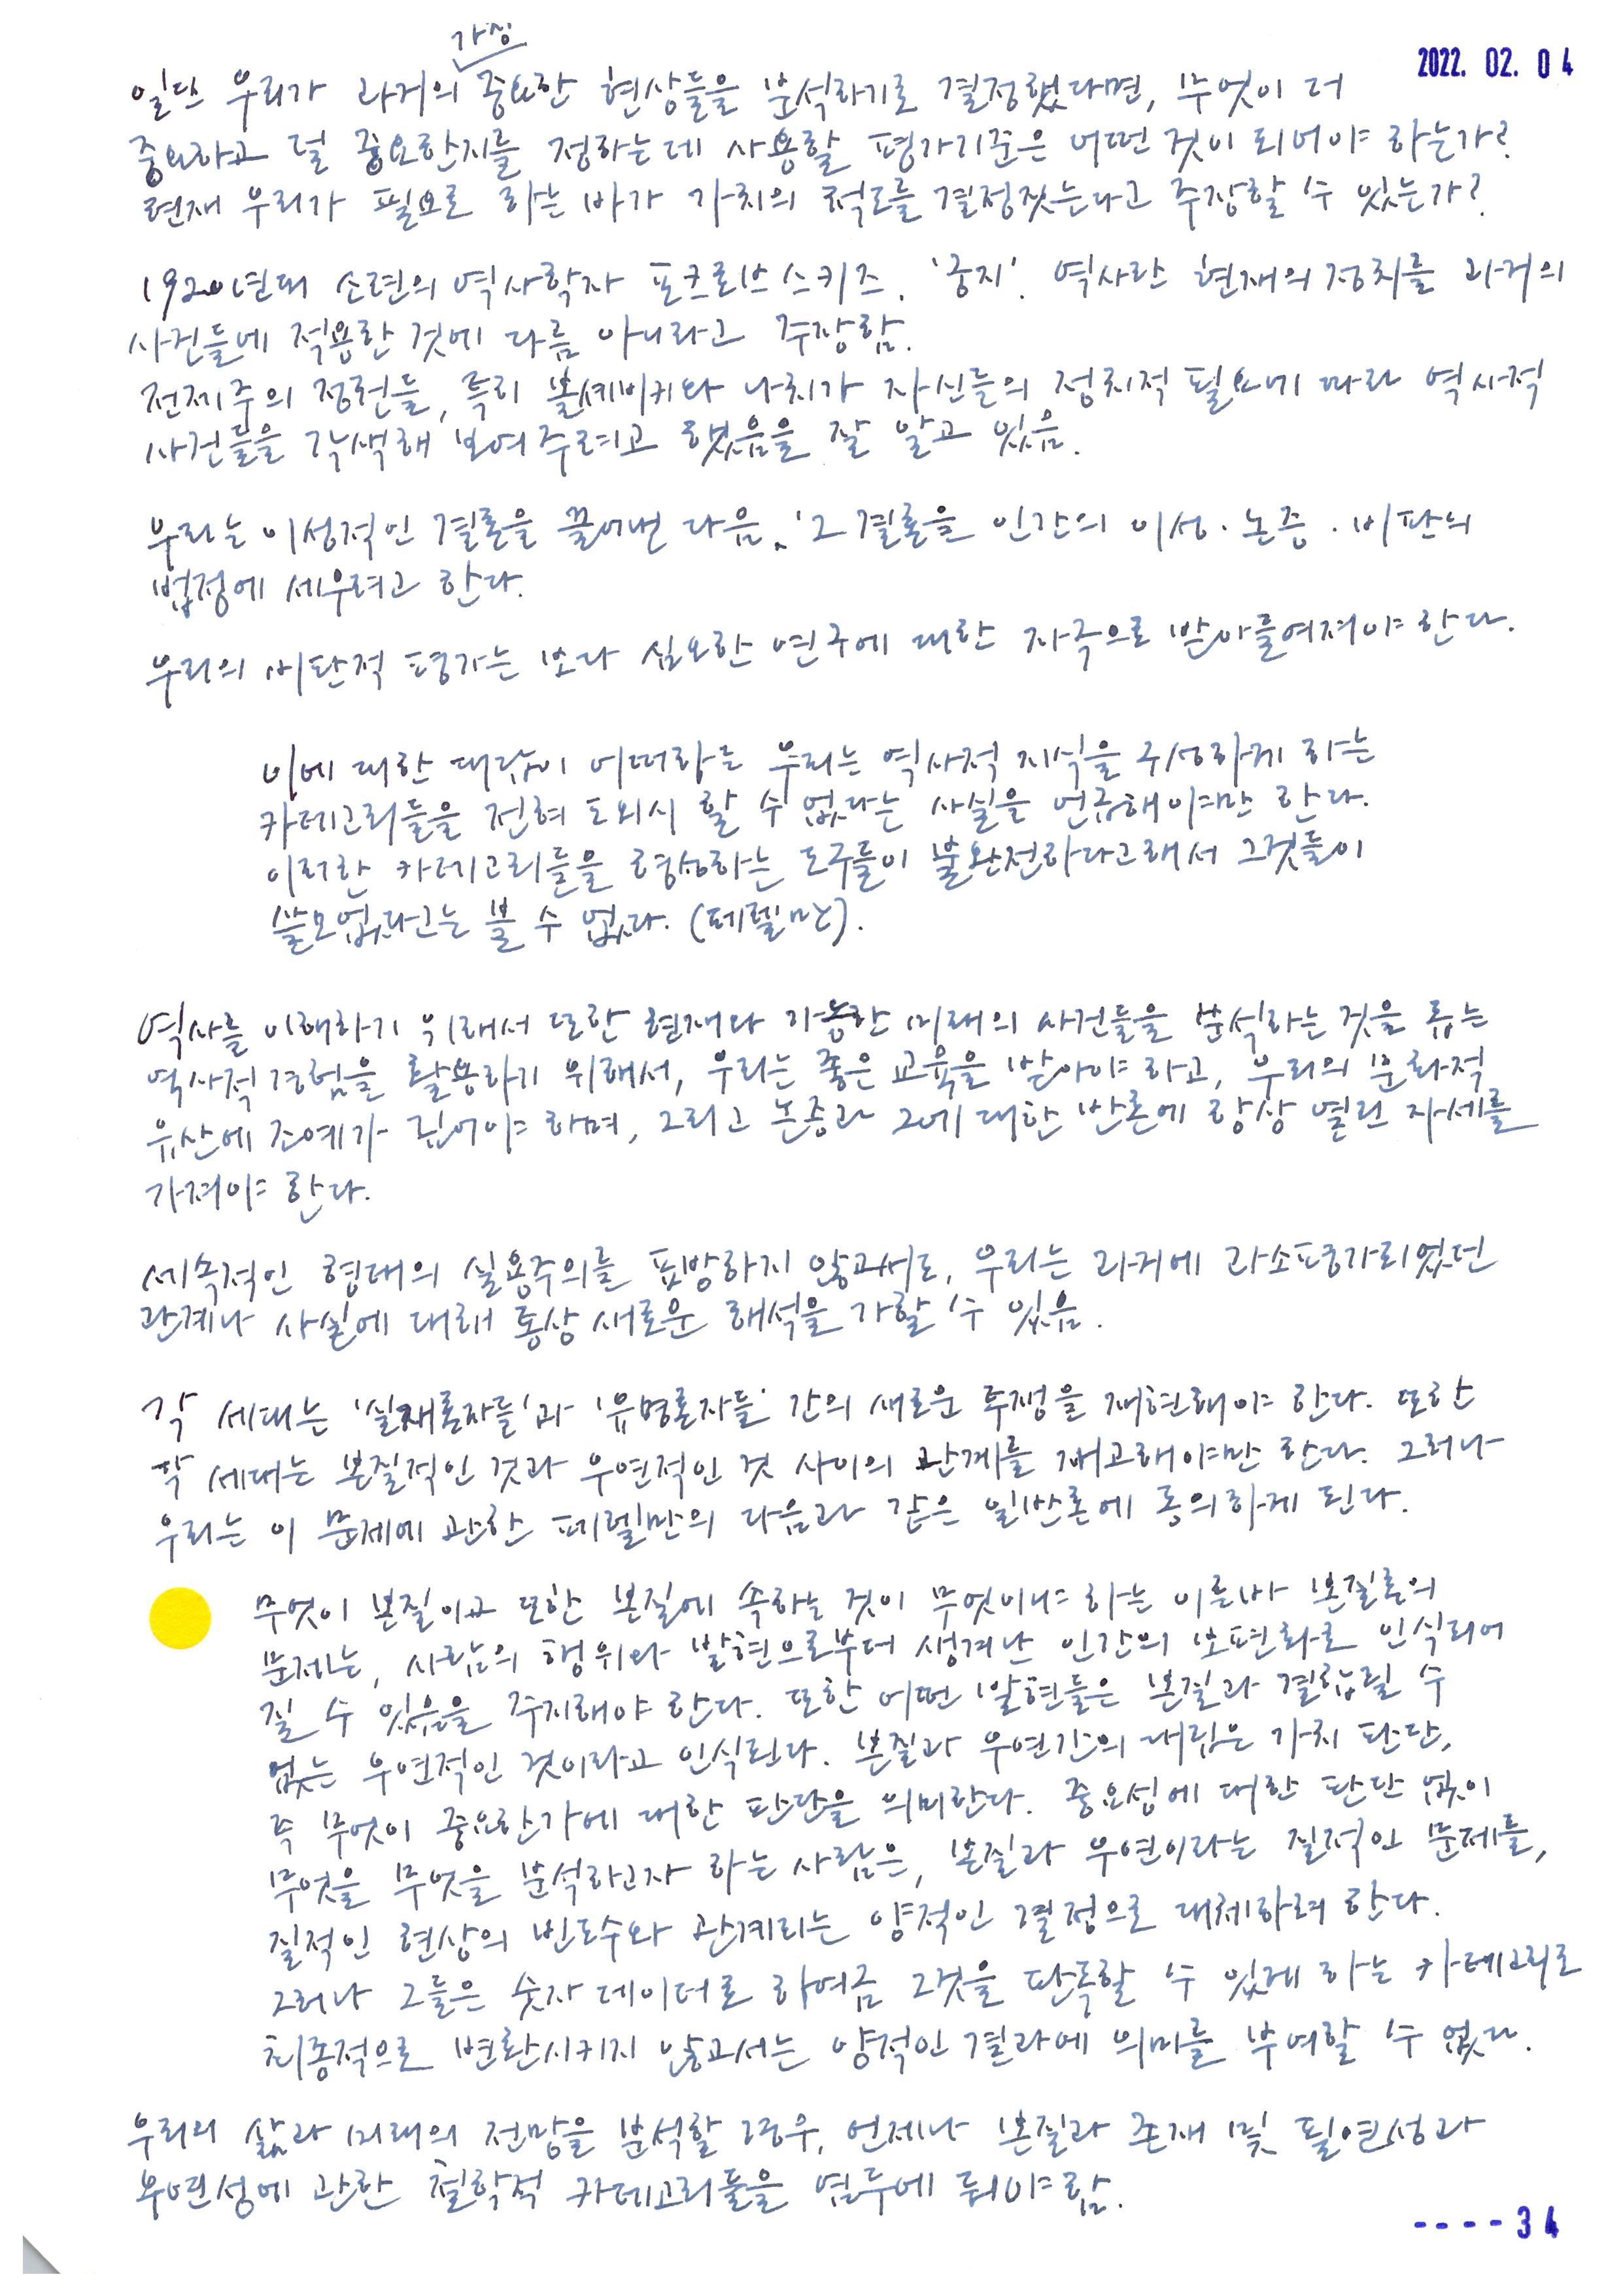 2022. 02. 04
가장
일단 우리가 과거의 중요한 현상들을 분석하기로 결정했다면, 무엇이 더
중요하고 덜 중요한지를 정하는데 사용할 평가기준은 어떤 것이 되어야 하는가?
현재 우리가 필요로 하는 바가 가치의 척도를 결정짓는다고 주장할 수 있는가?
1920년대 소련의 역사학자 포크로브스키즈. '중지'. 역사란 현재의 정치를 과거의
사건들에 적용한 것에 다름 아니라고 주장함.
전제주의 정권들, 특히 볼셰비키와 나치가 자신들의 정치적 필요에 따라 역사적
사건들을 각색해 보여주려고 했음을 잘 알고 있음.
우리는 이성적인 결론을 끌어낸 다음, 그 결론을 인간의 이성·논증·비판의
법정에 세우려고 한다.
우리의 비판적 평가는 보다 심오한 연구에 대한 자극으로 받아들여져야 한다.
이에 대한 대답이 어떠하든 우리는 역사적 지식을 구성하게 하는
카테고리들을 전혀 도외시 할 수 없다는 사실을 언급해야만 한다.
이러한 카테고리들을 형성하는 도구들이 불완전하다고해서 그것들이
쓸모없다고는 볼 수 없다. (페렐만).
역사를 이해하기 위해서 또한 현재와 가능한 미래의 사건들을 분석하는 것을 돕는
역사적 경험을 활용하기 위해서, 우리는 좋은 교육을 받아야 하고, 우리의 문화적
유산에 조예가 깊어야 하며, 그리고 논증과 그에 대한 반론에 항상 열린 자세를
가져야 한다.
세속적인 형태의 실용주의를 표방하지 않고서도, 우리는 과거에 과소평가되었던
관계나 사실에 대해 통상 새로운 해석을 가할 수 있음.
각 세대는 '실재론자들'과 '유명론자들' 간의 새로운 투쟁을 재현해야 한다. 또한
각 세대는 본질적인 것과 우연적인 것 사이의 관계를 재고해야만 한다. 그러나
우리는 이 문제에 관한 페렐만의 다음과 같은 일반론에 동의하게 된다.
무엇이 본질이고 또한 본질에 속하는 것이 무엇이냐 하는 이른바 본질론의
문제는, 사람의 행위와 발현으로부터 생겨난 인간의 보편화로 인식되어
질 수 있음을 주지해야 한다. 또한 어떤 발현들은 본질과 결합될 수
없는 우연적인 것이라고 인식된다. 본질과 우연간의 대립은 가치 판단,
즉 무엇이 중요한가에 대한 판단을 의미한다. 중요성에 대한 판단 없이
무엇을 무엇을 분석하고자 하는 사람은, 본질과 우연이라는 질적인 문제를,
질적인 현상의 빈도수와 관계되는 양적인 결정으로 대체하려 한다.
그러나 그들은 숫자 데이터로 하여금 그것을 판독할 수 있게 하는 카테고리로
최종적으로 변환시키지 않고서는 양적인 결과에 의미를 부여할 수 없다.
우리의 삶과 미래의 전망을 분석할 경우, 언제나 본질과 존재 및 필연성과
우연성에 관한 철학적 카테고리들을 염두에 둬야 함.
----34